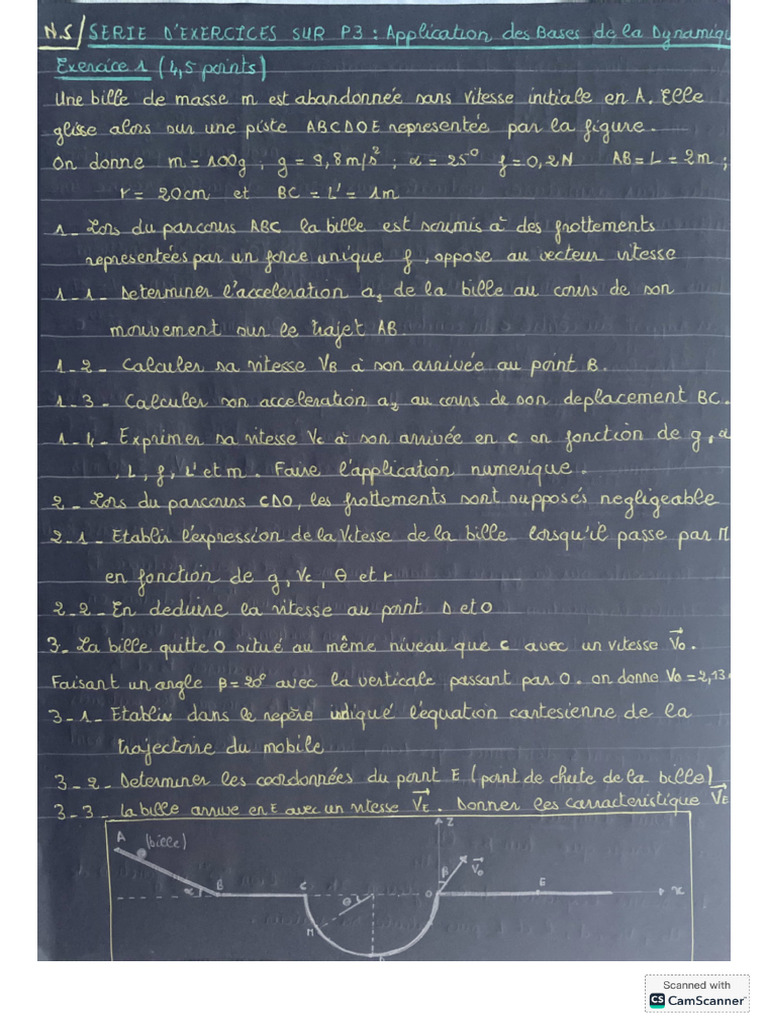 N.S/ SERIE D'EXERCICES SUR P3 : Application des Bases de la Dynamiqu
Exercice 1 (4,5 points)
Une bille de masse m est abandonnée sans vitesse initiale en A. Elle
glisse alors sur une piste ABCDOE representée par la figure.
On donne m = 100g ; g = 9,8m/s² ; α = 25° f = 0,2N AB = L = 2m ;
r = 20cm et BC = L' = 1m
1 - Lors du parcours ABC la bille est soumis à des frottements
representées par un force unique f, oppose au vecteur vitesse
1 - 1 - Determiner l'acceleration a₁ de la bille au cours de son
mouvement sur le trajet AB.
1 - 2 - Calculer sa vitesse VB à son arrivée au point B.
1 - 3 - Calculer son acceleration a₂ au cours de son deplacement BC.
1 - 4 - Exprimer sa vitesse Vc à son arrivée en C en fonction de g, α
, L, f, L' et m. Faire l'application numerique.
2 - Lors du parcours CDO, les frottements sont supposés negligeable
2 - 1 - Etablir l'expression de la Vitesse de la bille lorsqu'il passe par M
en fonction de g, Vc, θ et r
2 - 2 - En deduire la vitesse au point D et O
3 - La bille quitte O situé au même niveau que C avec un vitesse V⃗o.
Faisant un angle β = 20° avec la verticale passant par O. on donne Vo = 2,13
3 - 1 - Etablir dans le repère indiqué l'équation cartesienne de la
trajectoire du mobile
3 - 2 - Determiner les coordonnées du point E (point de chute de la bille)
3 - 3 - La bille arrive en E avec un vitesse V⃗E. Donner les carracteristique V⃗E
A (bille) z
β V⃗o
α B C θ O E x
M
D
Scanned with
CS CamScanner